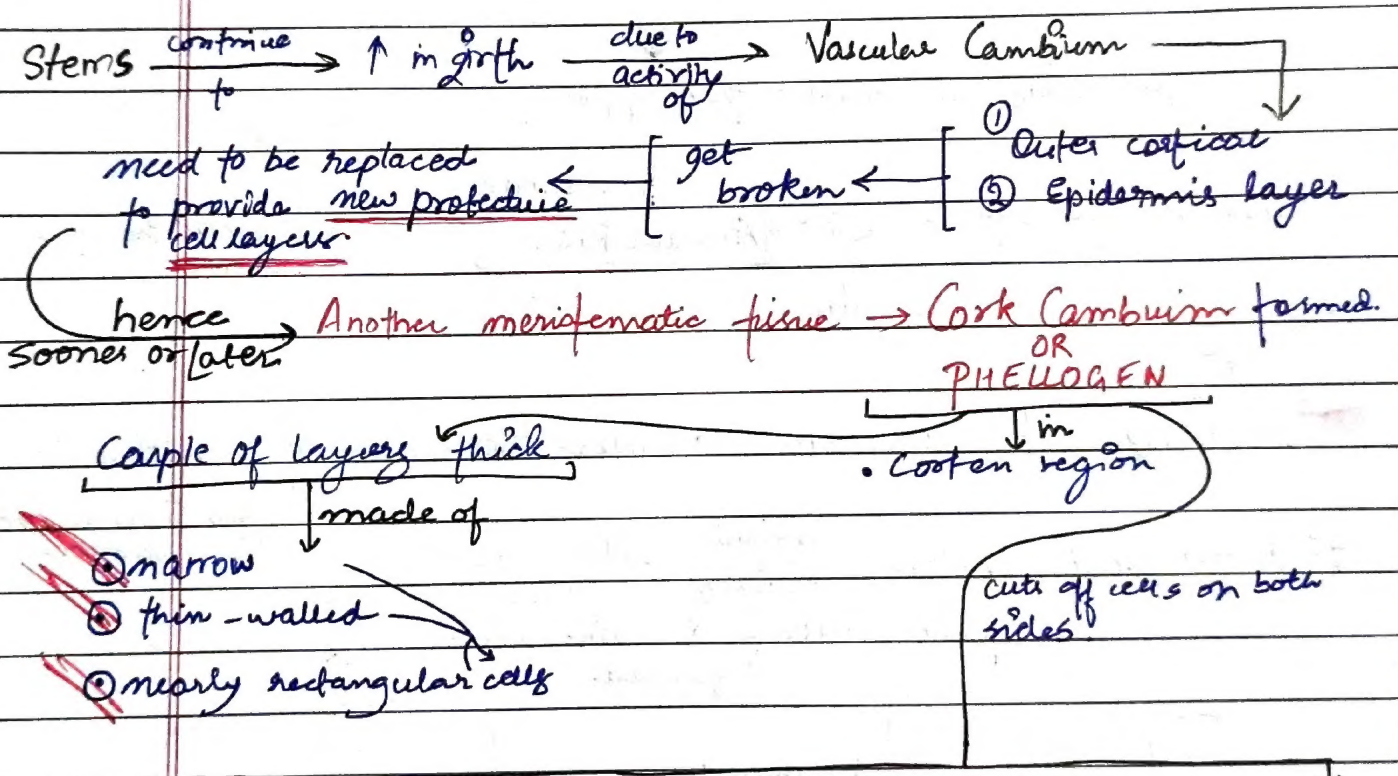 Stems continue to → ↑ in girth due to activity of → Vascular Cambium
① Outer cortical
② Epidermis layer
get broken
need to be replaced
to provide new protective
cell layers.
hence
sooner or later
Another meristematic tissue → Cork Cambuim formed.
OR
PHELLOGEN
in
• Cortex region
Couple of layers thick
made of
narrow
thin-walled
nearly rectangular cells
cuts off cells on both
sides.